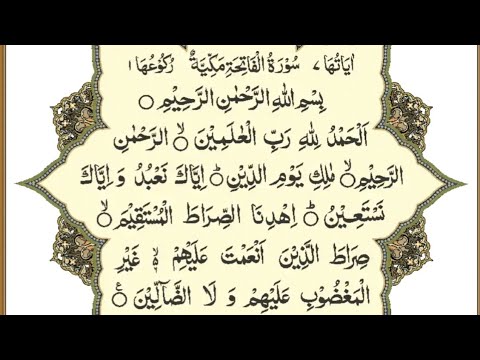 اٰیَاتُهَا ۷ سُوْرَةُ الْفَاتِحَةِ مَکِّیَّةٌ رُکُوْعُهَا ۱
بِسْمِ اللهِ الرَّحْمٰنِ الرَّحِیْمِ ○
اَلْحَمْدُ لِلّٰهِ رَبِّ الْعٰلَمِیْنَ ○ۙ الرَّحْمٰنِ
الرَّحِیْمِ ○ۙ مٰلِكِ یَوْمِ الدِّیْنِ ○ؕ اِیَّاكَ نَعْبُدُ وَ اِیَّاكَ
نَسْتَعِیْنُ ○ؕ اِهْدِنَا الصِّرَاطَ الْمُسْتَقِیْمَ ○ۙ
صِرَاطَ الَّذِیْنَ اَنْعَمْتَ عَلَیْهِمْ ۙ۬ غَیْرِ
الْمَغْضُوْبِ عَلَیْهِمْ وَ لَا الضَّآلِّیْنَ ○۠